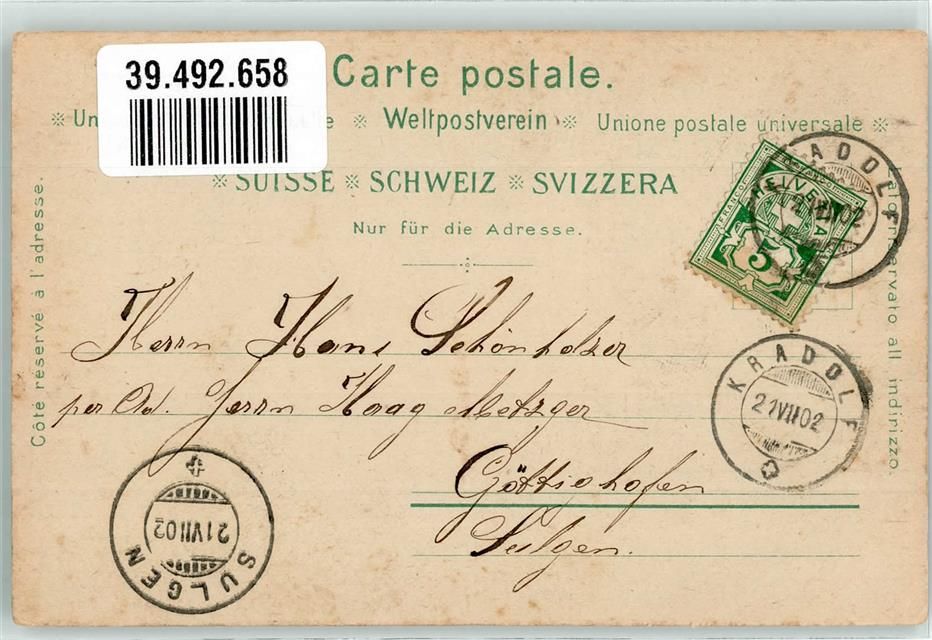 39.492.658
Carte postale.
※ Un le ※ Weltpostverein ※ Unione postale universale ※
※ SUISSE ※ SCHWEIZ ※ SVIZZERA
Nur für die Adresse.
Côté réservé à l'adresse.
Lato riservato all indirizzo.
FRANCO
HELVETIA
5
KRADOLF
21 VII 02
Herrn Hans Schönholzer
per Ad. Herrn Haag Metzger
Göttighofen
Sulgen.
KRADOLF
21 VII 02
SULGEN
21 VII 02